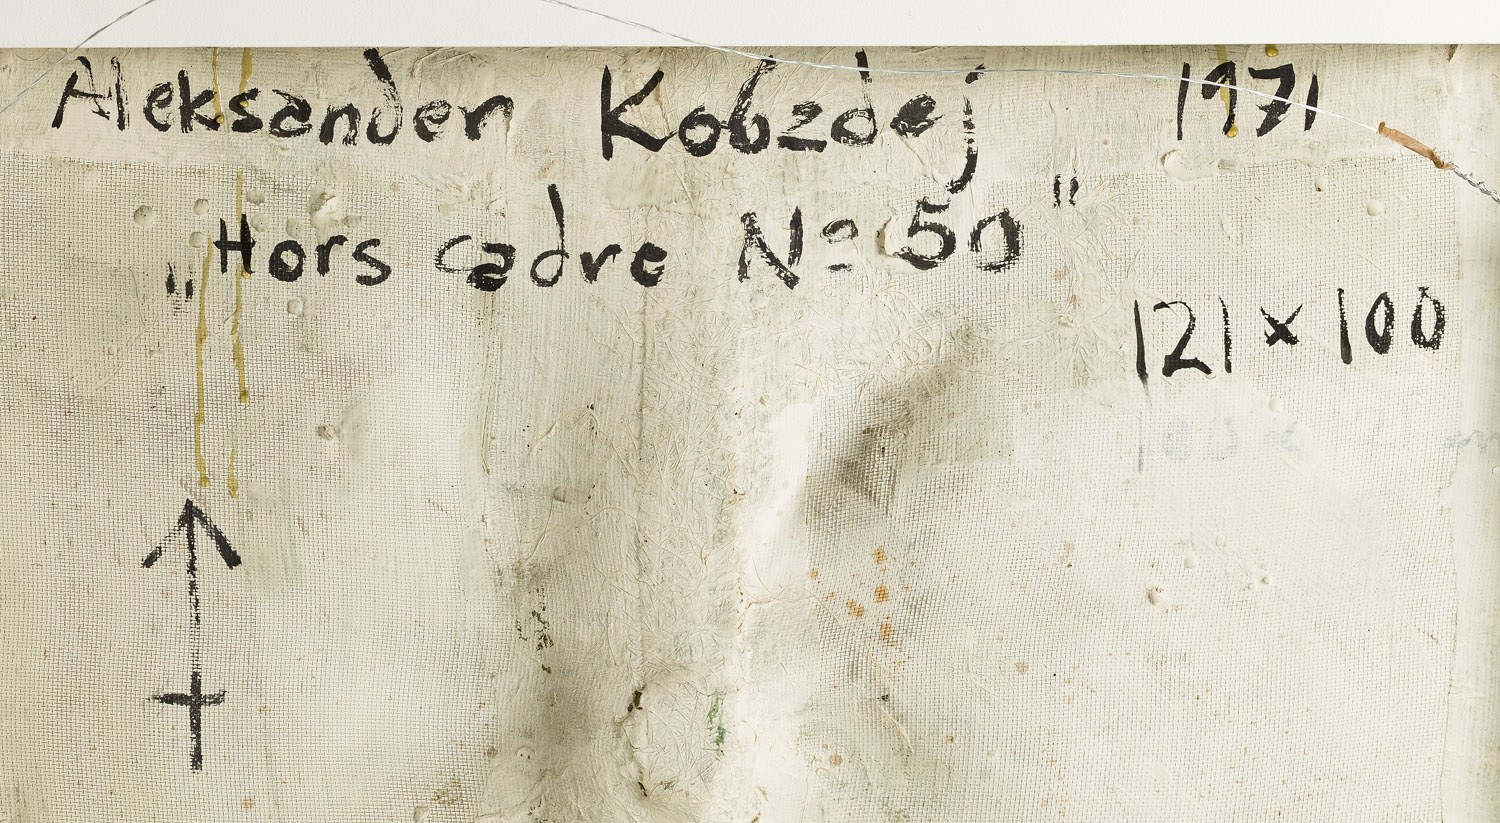 Aleksander Kobzdej 1971
„Hors cadre Nº 50"
121 x 100